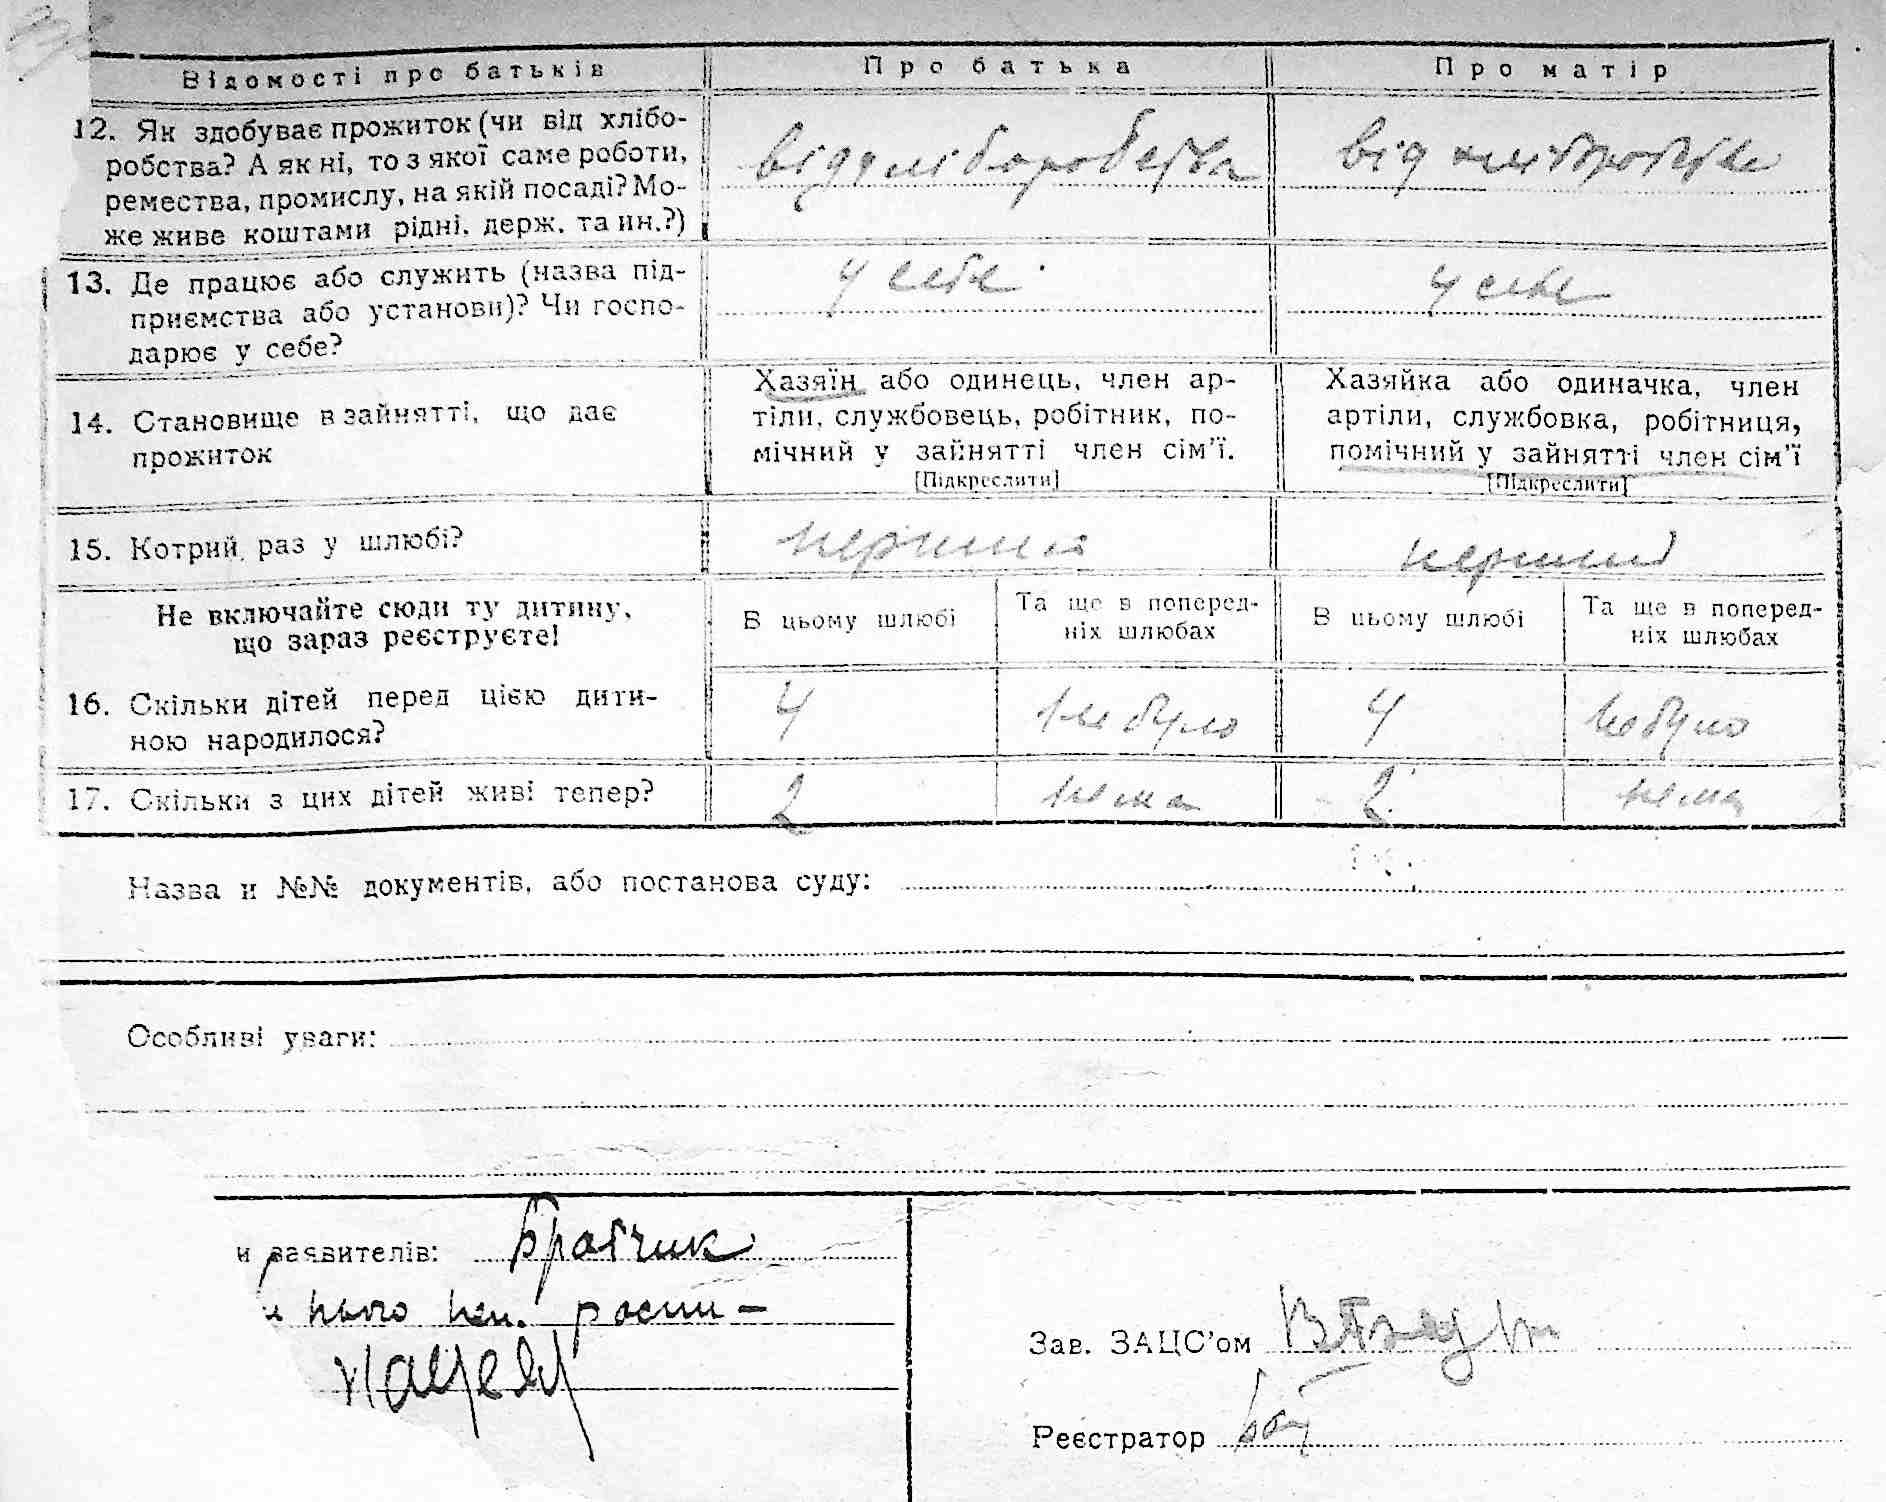 Відомості про батьків Про батька Про матір
12. Як здобуває прожиток (чи від хлібо-
робства? А як ні, то з якої саме роботи,
ремества, промислу, на якій посаді? Мо-
же живе коштами рідні. держ. та ин.?)
від хліборобства від хліборобства
13. Де працює або служить (назва під-
приємства або установи)? Чи госпо-
дарює у себе?
у себе у себе
14. Становище в зайнятті, що дає
прожиток
Хазяїн або одинець, член ар-
тіли, службовець, робітник, по-
мічний у зайнятті член сім'ї.
[Підкреслити]
Хазяйка або одиначка, член
артіли, службовка, робітниця,
помічний у зайнятті член сім'ї
[Підкреслити]
15. Котрий раз у шлюбі? перший перший
Не включайте сюди ту дитину,
що зараз реєструєте!
В цьому шлюбі
Та ще в поперед-
ніх шлюбах
В цьому шлюбі
Та ще в поперед-
ніх шлюбах
16. Скільки дітей перед цією дити-
ною народилося?
4 не було 4 не було
17. Скільки з цих дітей живі тепер? 2 нема 2 нема
Назва и №№ документів, або постанова суду:
Особливі уваги:
и заявителів: Братчик
Зав. ЗАЦС'ом
Реєстратор